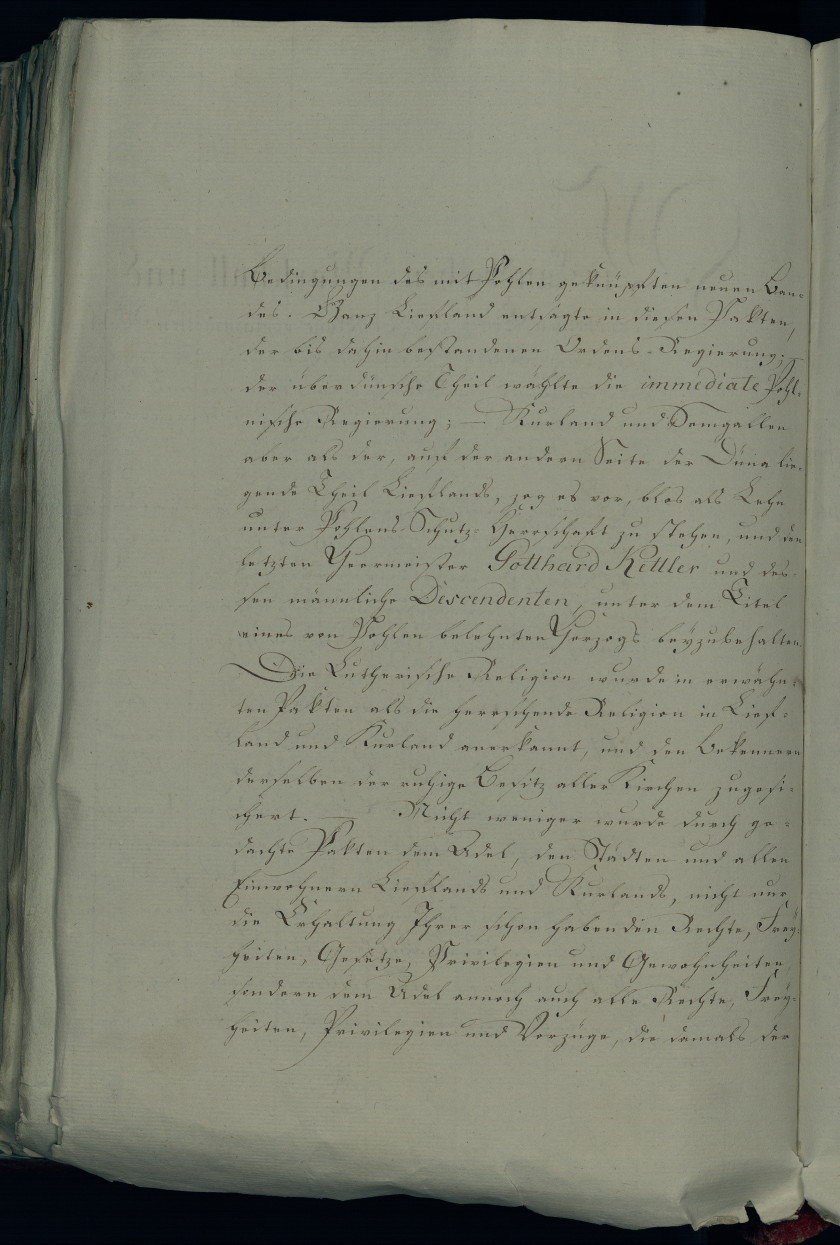 Bedingungen des mit Pohlen geknüpften neuen Ban-
des. Ganz Liefland entsagte in diesen Pakten,
der bis dahin bestandenen Ordens-Regierung;
der überdünsche Theil wählte die immediate Pohl-
nische Regierung; — Kurland und Semgallen
aber als der, auf der andern Seite der Düna lie-
gende Theil Lieflands, zog es vor, blos als Lehn
unter Pohlens Schutz-Herrschaft zu stehen, und den
letzten Heermeister Gotthard Kettler und des-
sen männliche Descendenten, unter dem Titel
eines von Pohlen belehnten Herzogs beyzubehalten.
Die Lutherische Religion wurde in erwähn-
ten Pakten als die herrschende Religion in Lief-
land und Kurland anerkannt, und den Bekennern
derselben der ruhige Besitz aller Kirchen zugesi-
chert. — Nicht weniger wurde durch ge-
dachte Pakten dem Adel, den Städten und allen
Einwohnern Lieflands und Kurlands, nicht nur
die Erhaltung Ihrer schon habenden Rechte, Frey-
heiten, Gesetze, Privilegien und Gewohnheiten,
sondern dem Adel annoch auch alle Rechte, Frey-
heiten, Privilegien und Vorzüge, die damals der